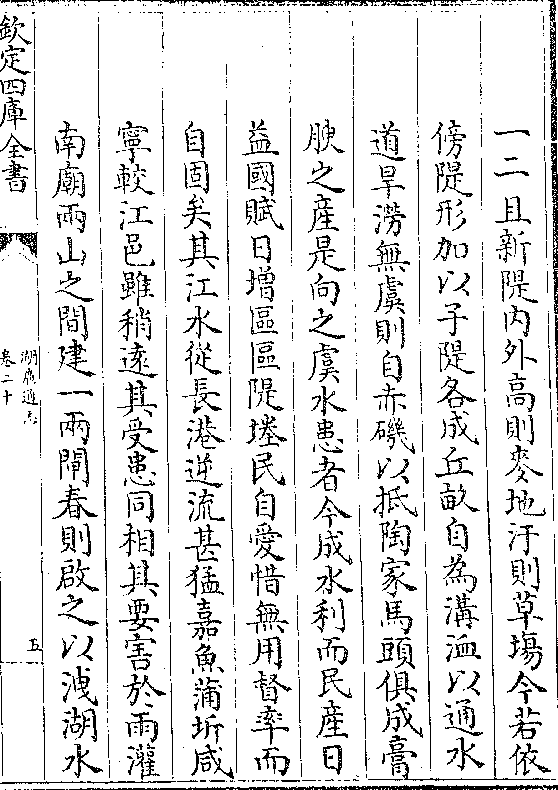 一二且新隄内外高則麥地汙則草塲今若依
傍隄形加以子隄各成丘畝自為溝洫以通水
道旱澇無虞則自赤磯以抵陶家馬頭俱成膏
腴之産是向之虞水患者今成水利而民産日
益國賦日增區區隄塍民自愛惜無用督率而
自固矣其江水從長港逆流甚猛嘉魚蒲圻咸
寧較江邑雖稍逺其受患同相其要害於雨灌
南廟兩山之間建一兩閘春則啟之以洩湖水
欽定四庫全書
湖廣通志
卷二十
五